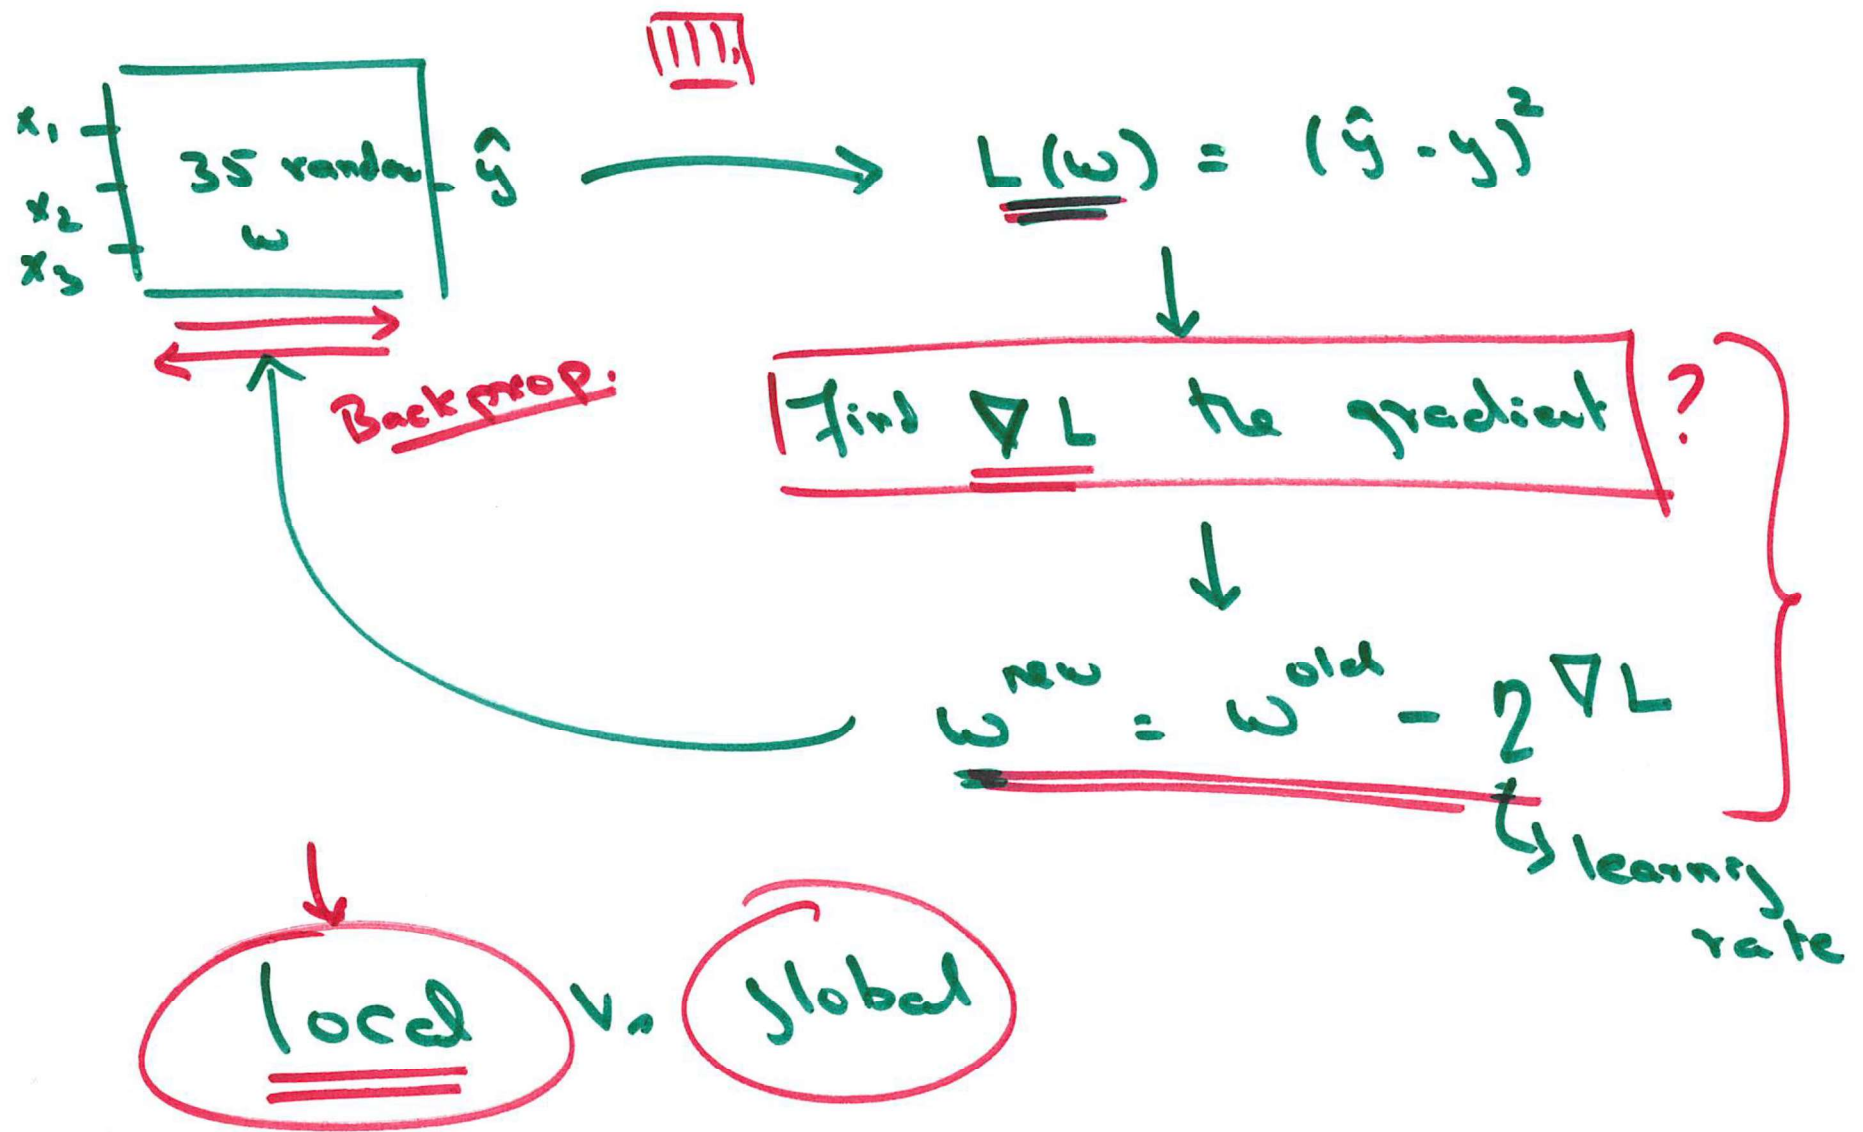 x₁
x₂
x₃
35 random
w
ŷ
L(w) = (ŷ - y)²
Backprop.
Find ∇L the gradient ?
w^new = w^old - η ∇L
learning
rate
local vs global